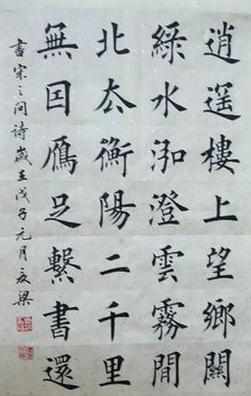 逍遥樓上望鄉關
綠水泓澄雲霧間
北厺衡陽二千里
無囙鴈足繫書還
書宋之問詩歲在戊子元月梁